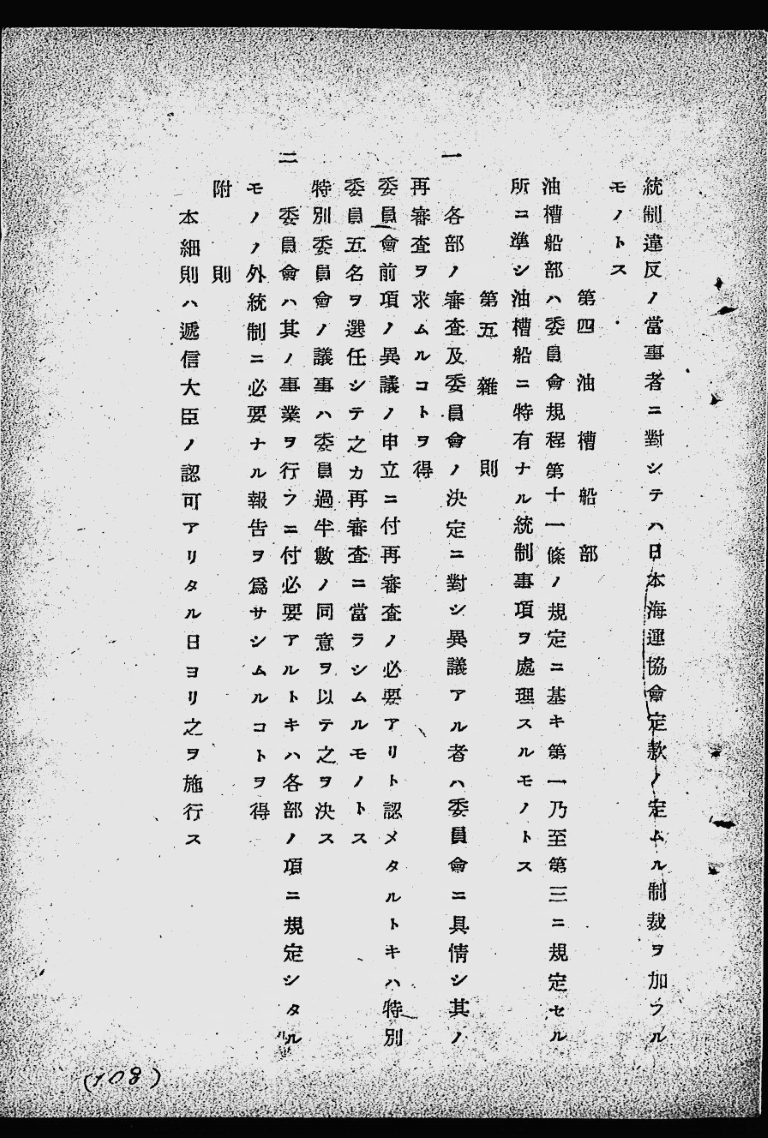 統制違反ノ當事者ニ對シテハ日本海運協會定款ノ定ムル制裁ヲ加フル
モノトス
第四 油槽船部
油槽船部ハ委員會規程第十一條ノ規定ニ基キ第一乃至第三ニ規定セル
所ニ準シ油槽船ニ特有ナル統制事項ヲ處理スルモノトス
第五 雜則
一 各部ノ審査及委員會ノ決定ニ對シ異議アル者ハ委員會ニ具情シ其ノ
再審査ヲ求ムルコトヲ得
委員會前項ノ異議ノ申立ニ付再審査ノ必要アリト認メタルトキハ特別
委員五名ヲ選任シテ之カ再審査ニ當ラシムルモノトス
特別委員會ノ議事ハ委員過半數ノ同意ヲ以テ之ヲ決ス
二 委員會ハ其ノ事業ヲ行フニ付必要アルトキハ各部ノ項ニ規定シタル
モノノ外統制ニ必要ナル報告ヲ爲サシムルコトヲ得
附則
本細則ハ遞信大臣ノ認可アリタル日ヨリ之ヲ施行ス
(108)